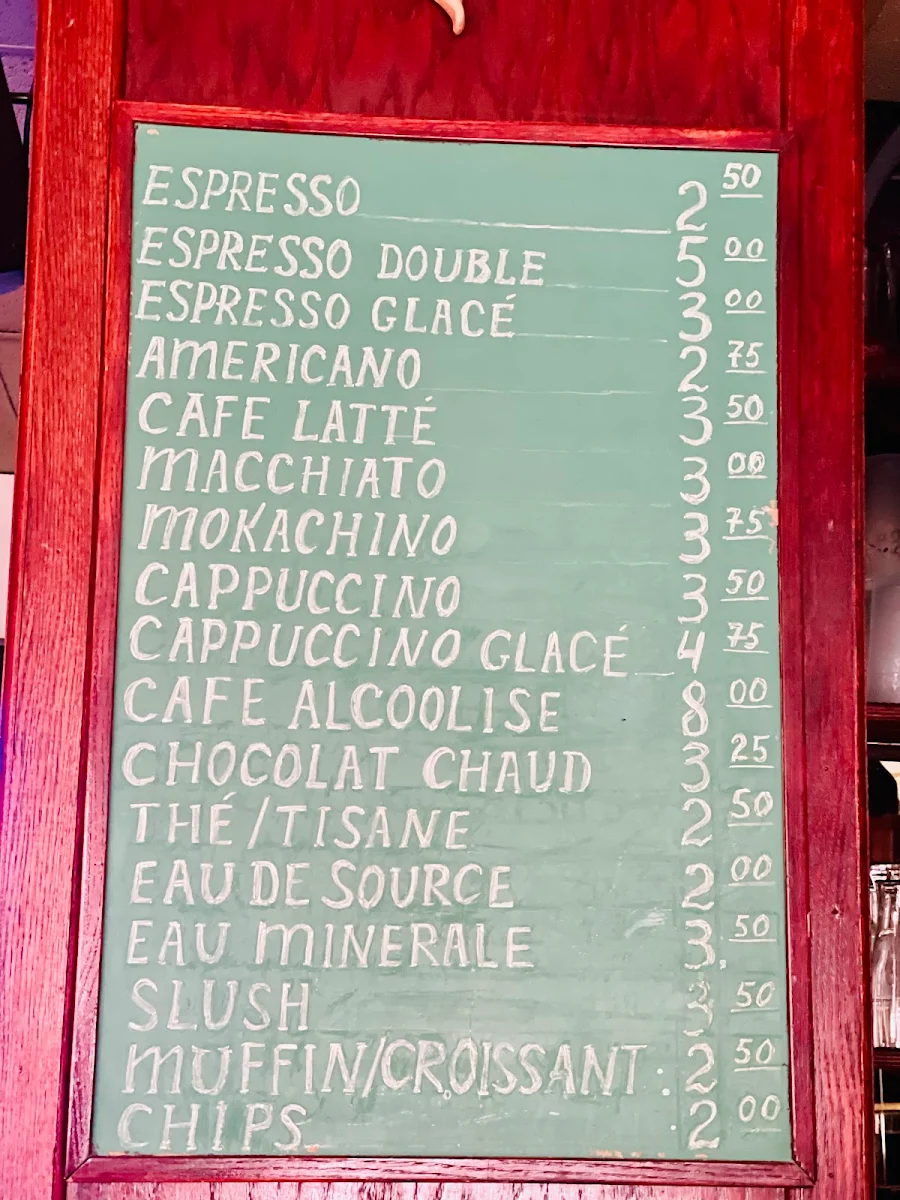 ESPRESSO 2 50
ESPRESSO DOUBLE 5 00
ESPRESSO GLACÉ 3 00
AMERICANO 2 75
CAFE LATTÉ 3 50
MACCHIATO 3 00
MOKACHINO 3 75
CAPPUCCINO 3 50
CAPPUCCINO GLACÉ 4 75
CAFE ALCOOLISE 8 00
CHOCOLAT CHAUD 3 25
THÉ/TISANE 2 50
EAU DE SOURCE 2 00
EAU MINERALE 3 50
SLUSH 50
MUFFIN/CROISSANT 2 50
CHIPS 2 00